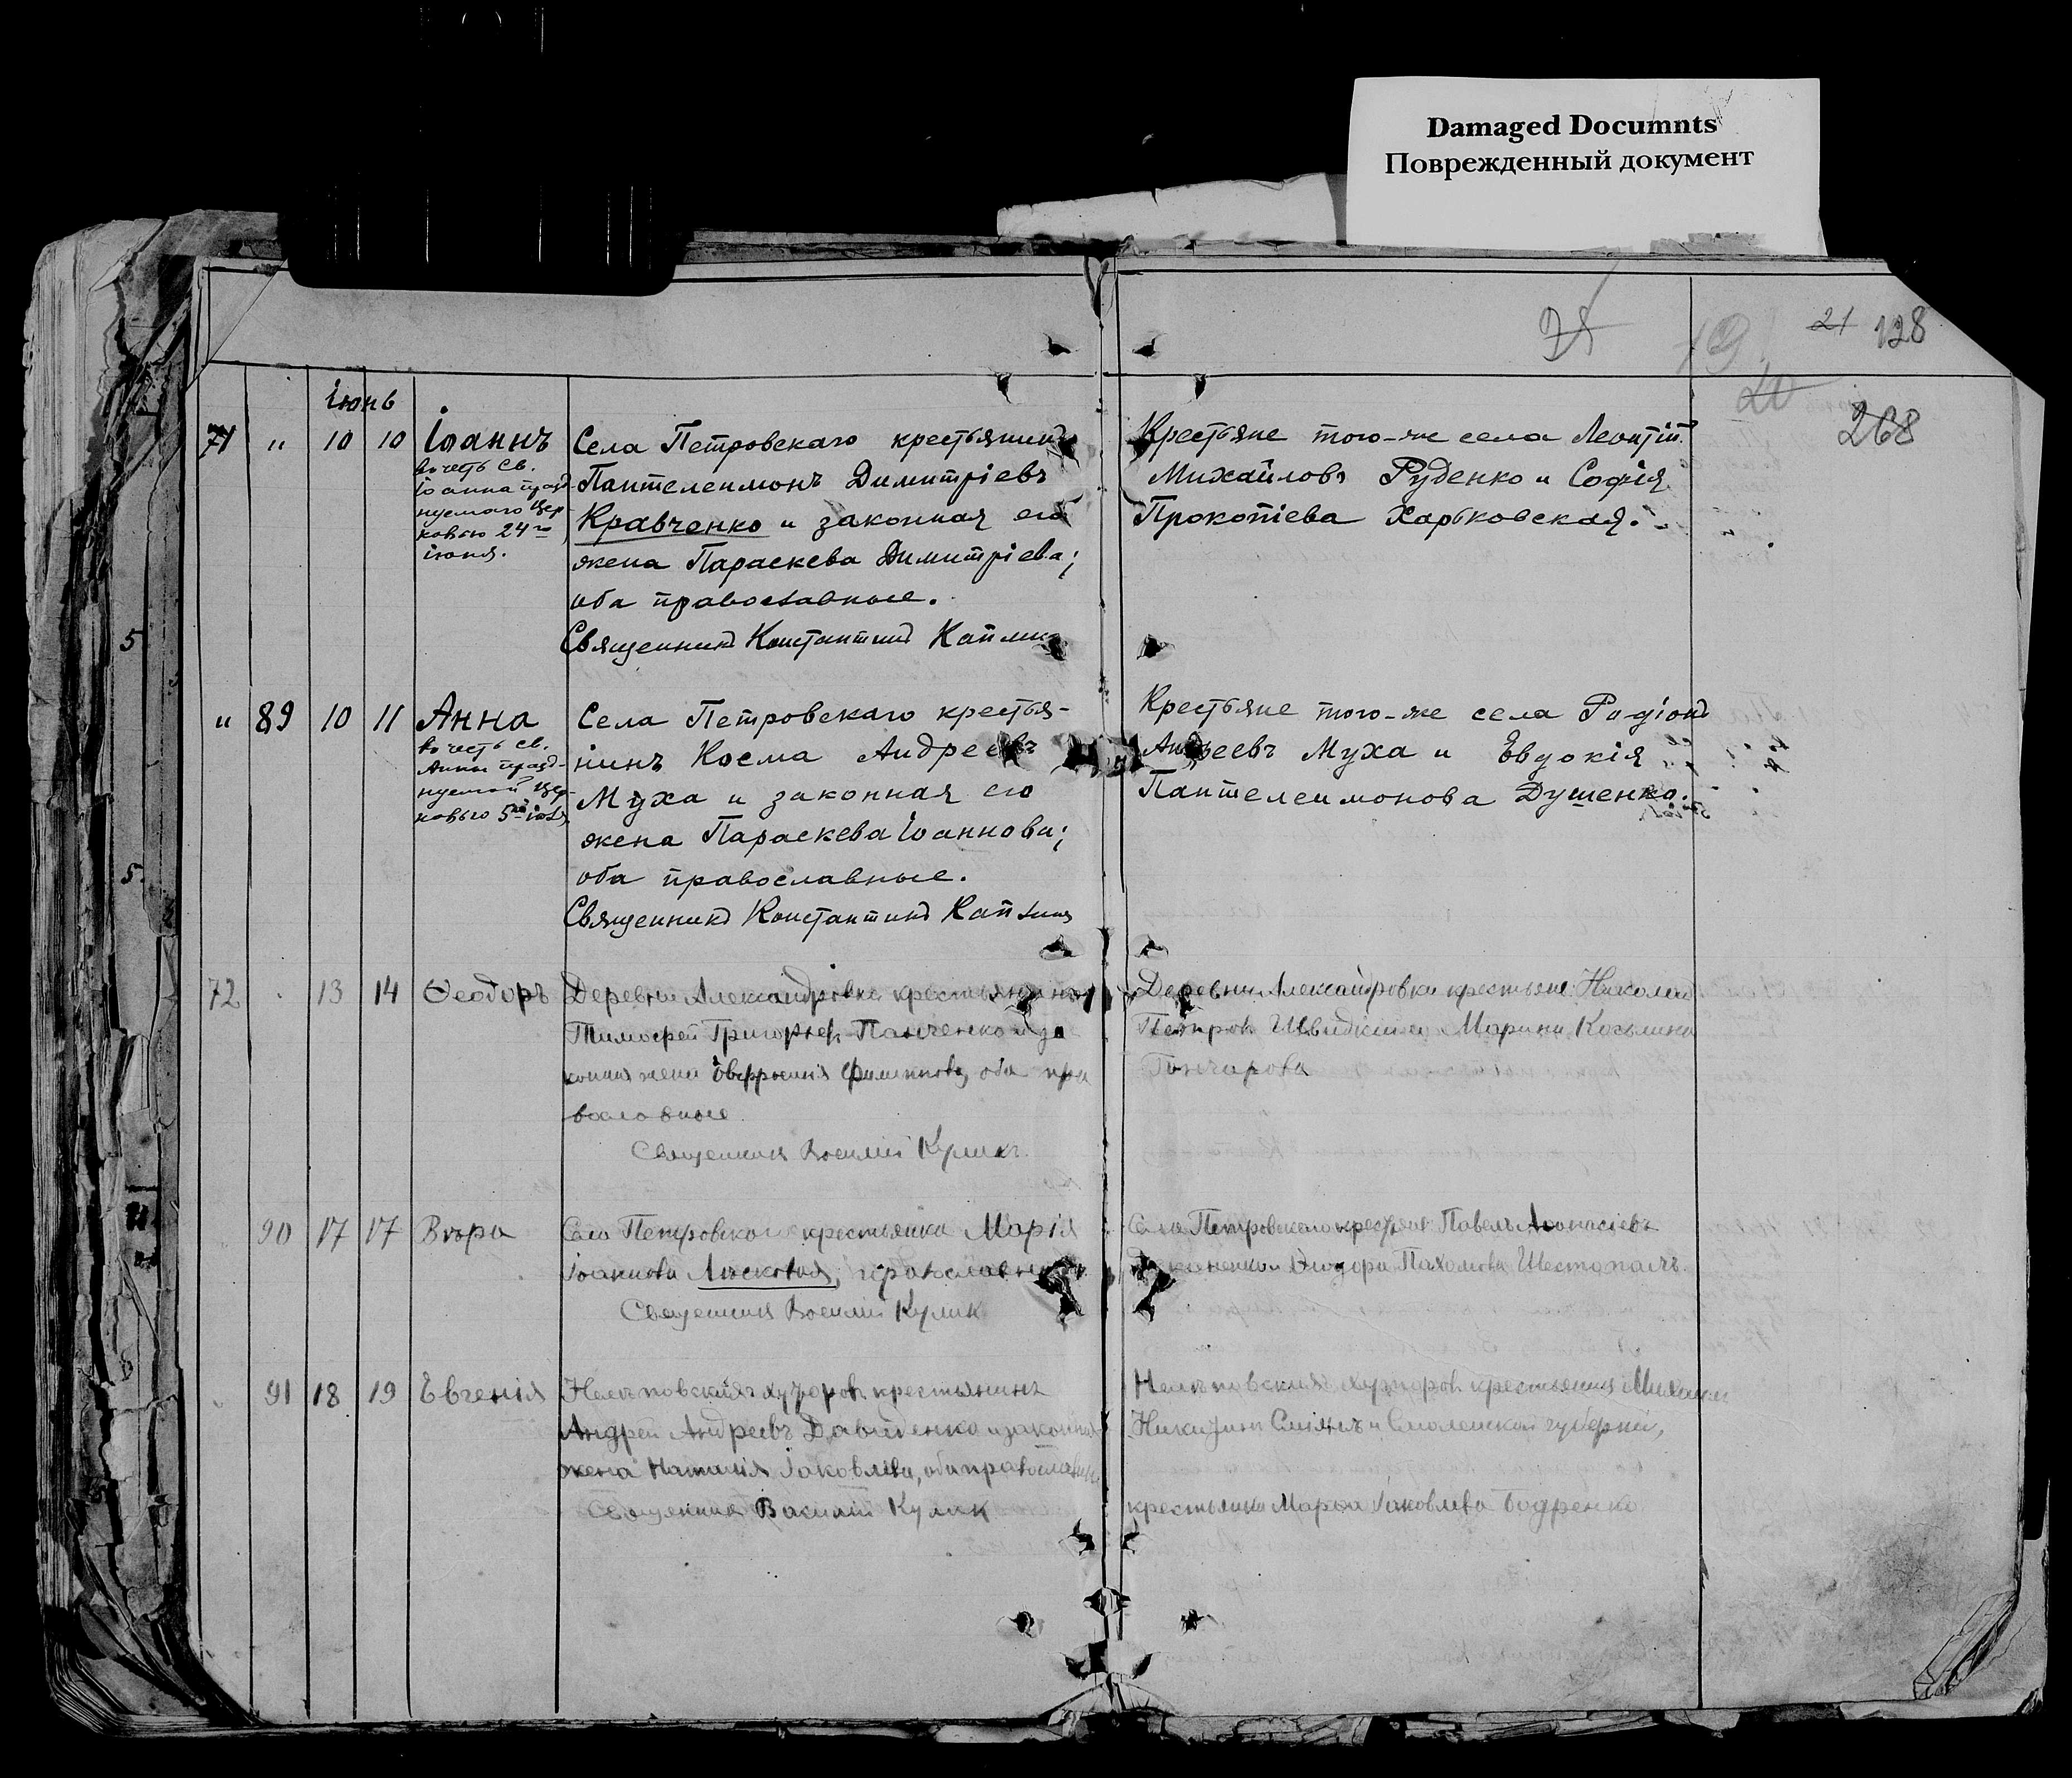 Damaged Documnts
Поврежденный документ
21 128
19
20
268
іюнь
71 " 10 10 Іоаннъ
во честь св.
Іоанна празд-
нуемаго Цер
ковью 24го
іюня.
Села Петровскаго крестьянинъ
Пантелеимонъ Димитріевъ
Кравченко и законная его
жена Параскева Димитріева;
оба православные.
Священникъ Константинъ
Крестьяне того-же села Леонтій
Михайловъ Руденко и Софія
Прокопіева Харьковская.
" 89 10 11 Анна
во честь св.
Анны празд-
нуемой Цер-
ковью 5го
Села Петровскаго крестья-
нинъ Косма Андреевъ
Муха и законная его
жена Параскева Іоаннова;
оба православные.
Священникъ Константинъ
Крестьяне того-же села Родіонъ
Андреевъ Муха и Евдокія
Пантелеимонова Душенко.
72 13 14 Ѳеодоръ
Деревни Александровки крестьянинъ
Тимофей Григорьев Панченко и за
конная жена Филиппова, оба пра
вославные
Священник Василий Кулик
Деревни Александровки крестьяне Николай
Петров Швидкий и Марина Козьмина
Гончарова
90 17 17 Вѣра
Села Петровскаго крестьянка Марія
Іоаннова православная
Священник Василий Кулик
Села Петровскаго крестьяне Павелъ Аѳанасіевъ
Ѳеодора Пахомова Шестопалъ
91 18 19 Евгенія
хуторов крестьянинъ
Андрей Андреевъ Давиденко и законная
жена Наталия Іаковлева, оба православные
Священник Василий Кулик
хуторов крестьянин Михаил
Никитин и Смоленской губернии,
крестьянка Марѳа Іаковлева Бодренко
5
5